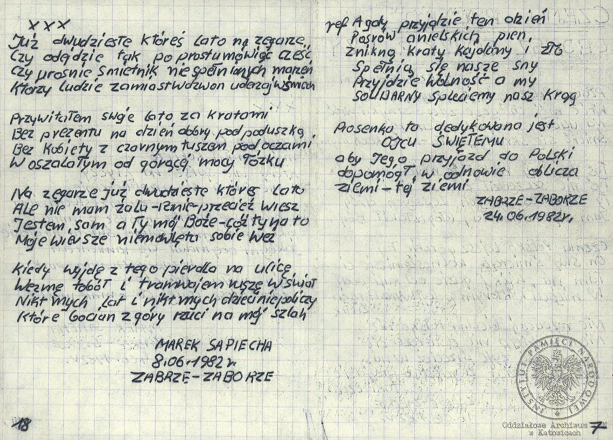 x x x
Już dwudzieste któreś lato na zegarze
Czy odejdzie tak po prostu mówiąc cześć
Czy prosnie śmietnik niespełnianych marzeń
Który ludzie zamiast w dzwon uderzają w śmiech
Przywitałem swoje lato za kratami
Bez prezentu na dzień dobry pod poduszką
Bez kobiety z czarnym tuszem pod oczami
W oszalałym od gorącej mocy łóżku
Na zegarze już dwudzieste któreś lato
ALE nie mam żalu przecież wiesz
Jestem sam a Ty mój Boże cóż Ty na to
Moje wiersze niemowlęta sobie weź
Kiedy wyjdę z tego pierdla na ulicę
Wezmę toboł i tramwajem ruszę w świat
Nikt mych lat i nikt mych dzieci nie policzy
Które bocian z góry rzuci na mój szlak
MAREK SAPIECHA
8.06.1982 r
ZABRZE-ZABORZE
18
ref A gdy przyjdzie ten dzień
Pośród anielskich pień
Znikną kraty kajdany i zło
Spełnią się nasze sny
Przyjdzie wolność a my
SOLIDARNY spleciemy nasz krąg
Piosenka ta dedykowana jest
OJCU ŚWIĘTEMU
aby Jego przyjazd do Polski
dopomógł w odnowie oblicza
ziemi - tej ziemi
ZABRZE-ZABORZE
24.06.1982 r.
7
INSTYTUT PAMIĘCI NARODOWEJ
Oddziałowe Archiwum
w Katowicach